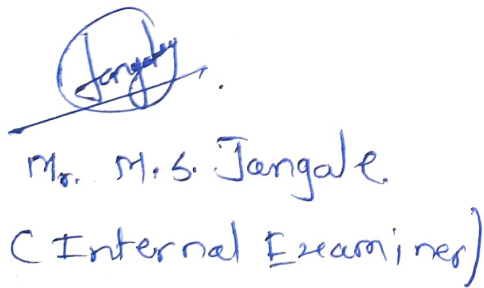 Jangale
Mr. M.S. Jangale.
(Internal Examiner)